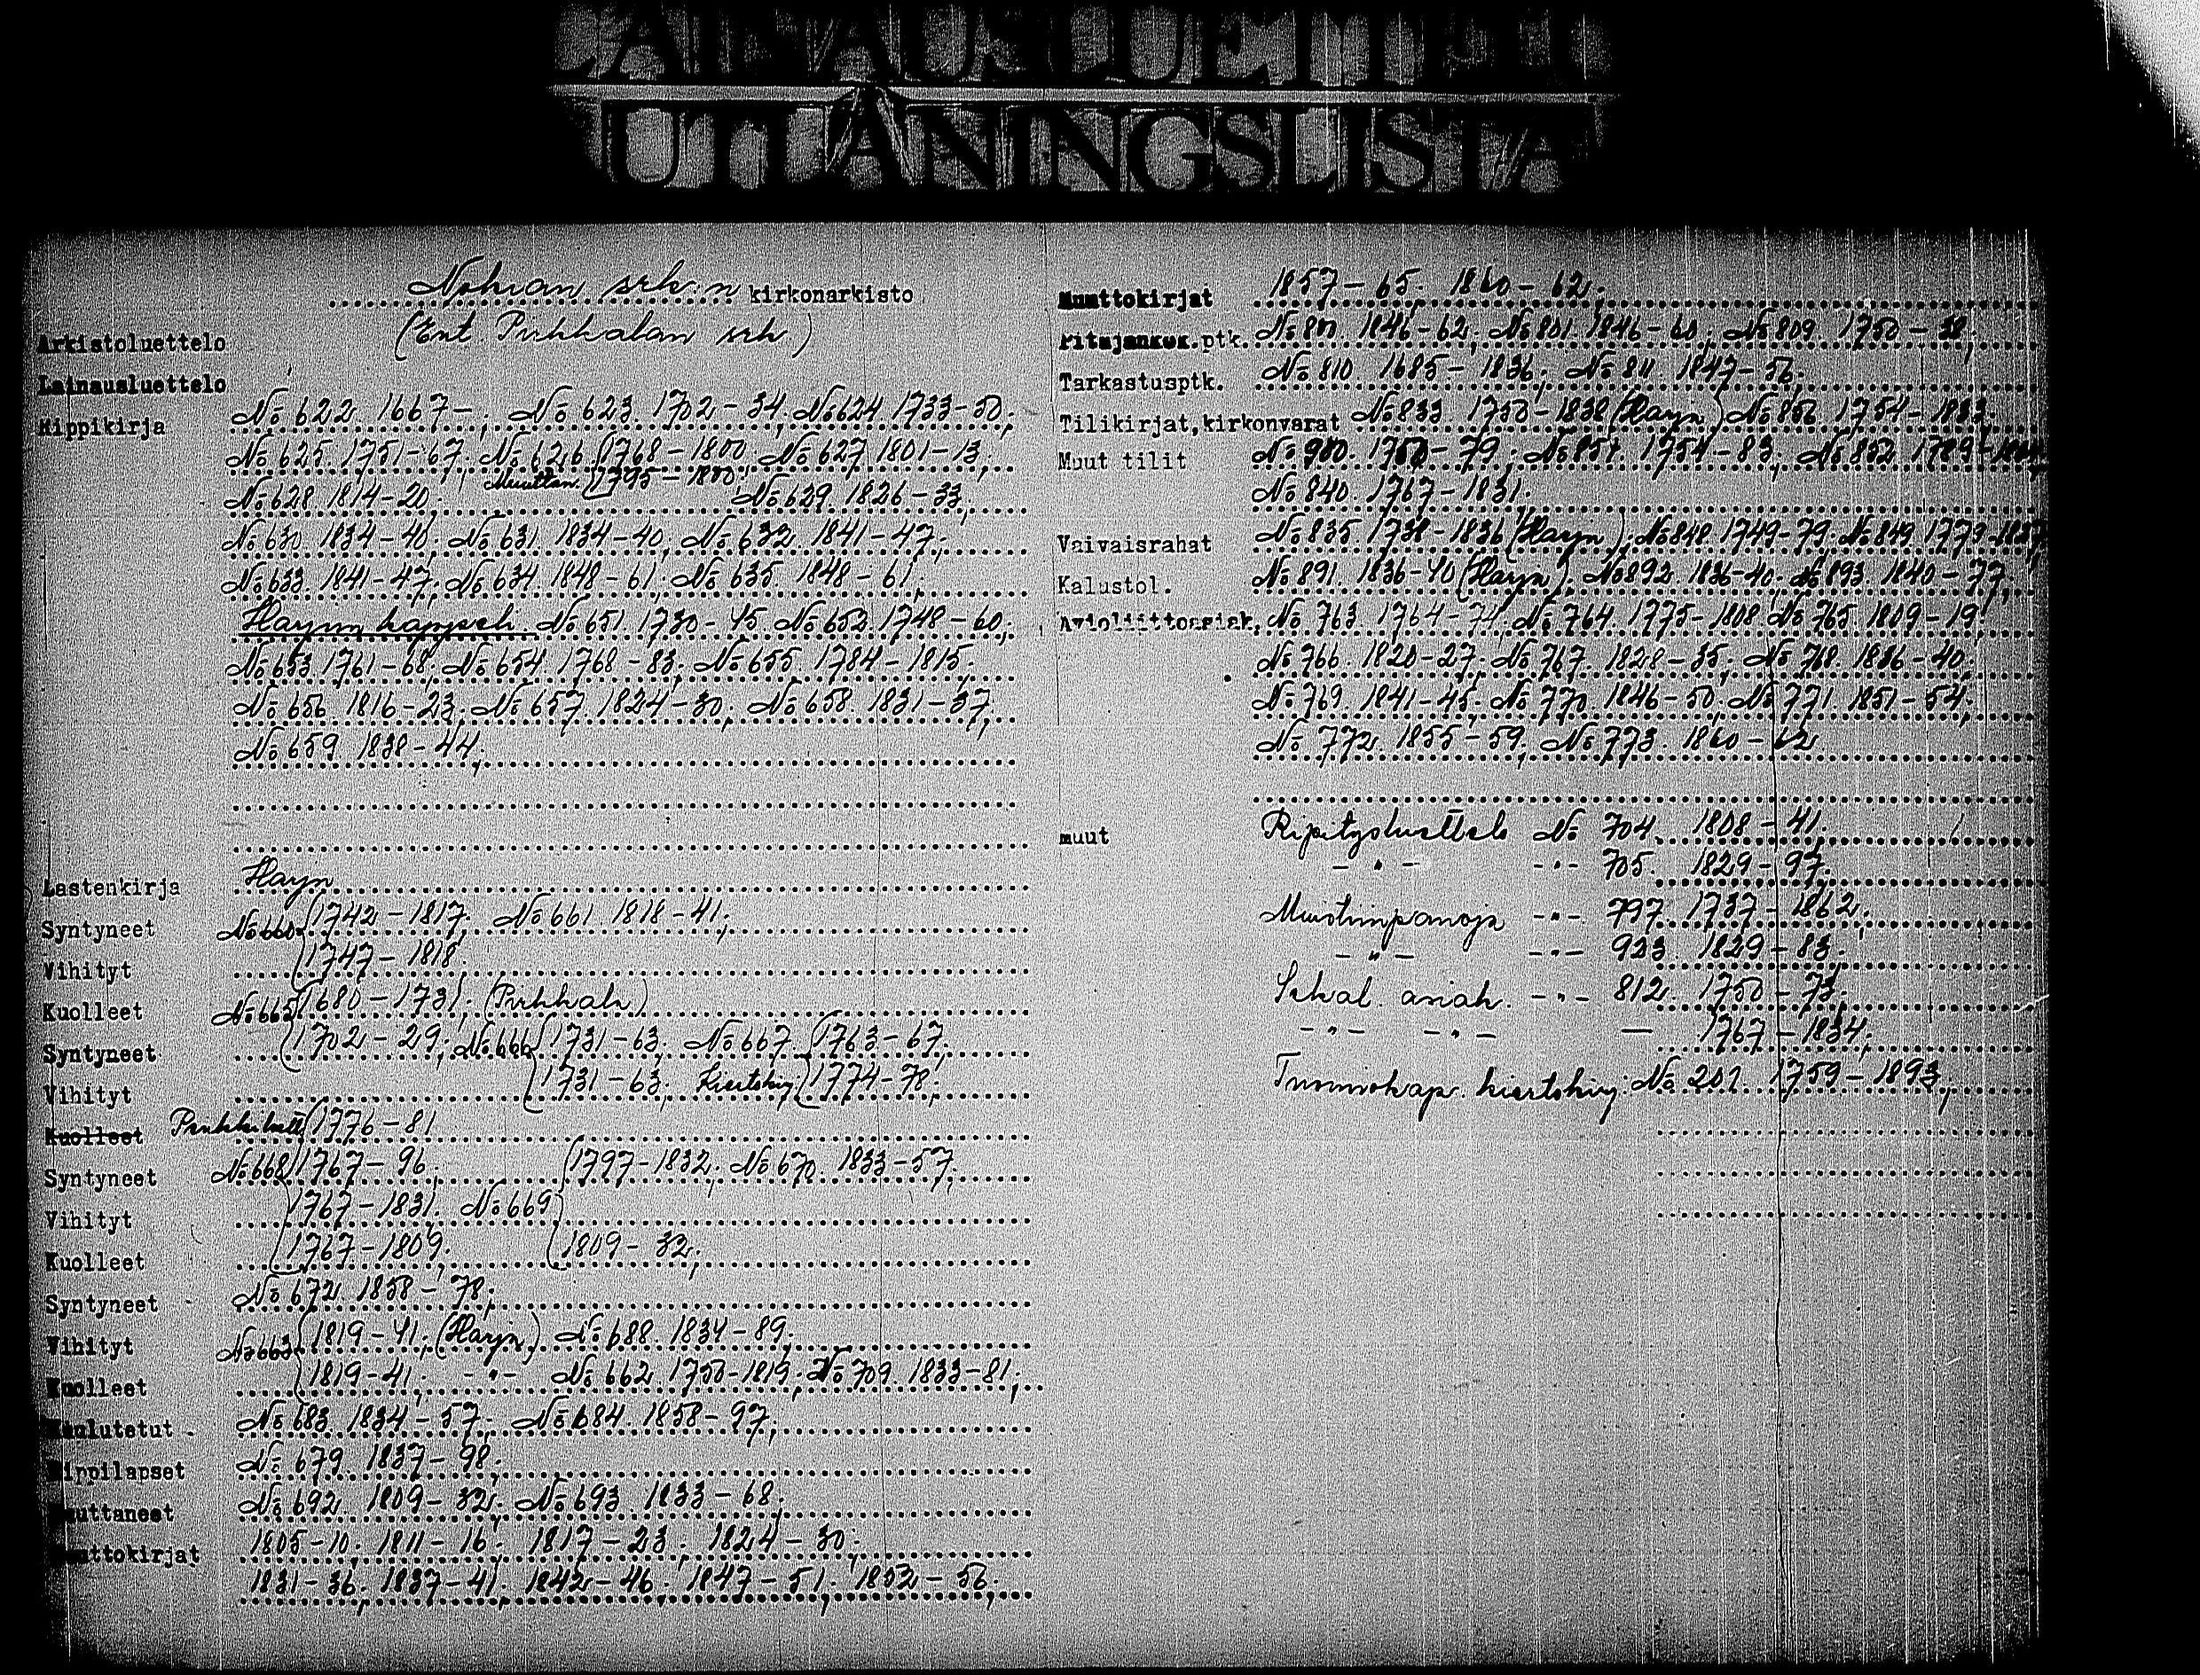 LAINAUSLUETTELO
UTLÅNINGSLISTA
Nokian srk:n kirkonarkisto
(Ent. Pirkkalan srk)
Arkistoluettelo
Lainausluettelo
Rippikirja No 622 1667-; No 623 1702-34; No 624 1733-50;
No 625 1751-67; No 626 1768-1800; No 627 1801-13;
Muuttan. 1795-1800
No 628 1814-20; No 629 1826-33;
No 630 1834-40; No 631 1834-40; No 632 1841-47;
No 633 1841-47; No 634 1848-61; No 635 1848-61;
Harjun kappeli. No 651 1730-45 No 652 1748-60;
No 653 1761-68; No 654 1768-83; No 655 1784-1815;
No 656 1816-23; No 657 1824-30; No 658 1831-37;
No 659 1838-44;
Lastenkirja Harju
Syntyneet No 660 1742-1817; No 661 1818-41;
Vihityt 1747-1818
Kuolleet No 665 1680-1731; (Pirkkala)
Syntyneet 1702-29; No 666 1731-63; No 667 1763-67;
Vihityt 1731-63; Kiertokirj. 1774-78;
Kuolleet 1776-81
Syntyneet No 668 1767-96; 1797-1832; No 670 1833-57;
Vihityt 1767-1831; No 669
Kuolleet 1767-1809; 1809-32;
Syntyneet No 672 1858-78;
Vihityt No 663 1819-41; (Harju) No 688 1834-89;
Kuolleet 1819-41; -"- No 662 1750-1819; No 709 1833-81;
Kuulutetut No 683 1834-57; No 684 1858-97;
Rippilapset No 679 1837-98;
Muuttaneet No 692 1809-32; No 693 1833-68;
Muuttokirjat 1805-10; 1811-16; 1817-23; 1824-30;
1831-36; 1837-41; 1842-46; 1847-51; 1852-56;
Muuttokirjat 1857-65; 1860-62;
Pitäjänkok. ptk. 1846-62; No 801 1846-60; No 809
Tarkastusptk. No 810 1685-1836; No 811 1847-56;
Tilikirjat, kirkonvarat No 833 1750-1838 (Harju) No 856 1754-1833;
Muut tilit 1754-83; No 852
No 840 1767-1831.
Vaivaisrahat No 835 1738-1836 (Harju); No 848 1749-79 No 849 1779-1837
Kalustol. No 891 1836-40 (Harju); No 892 1836-40; No 893 1840-77;
Avioliittoasiak. No 763 1764-74; No 764 1775-1808 No 765 1809-19;
No 766 1820-27; No 767 1828-35; No 768 1836-40;
No 769 1841-45; No 770 1846-50; No 771 1851-54;
No 772 1855-59; No 773 1860-62
muut Ripitysluettelo No 704 1808-41.
-"- -"- 705. 1829-97.
Muistiinpanoja -"- 797. 1737-1862.
-"- -"- 923 1829-83.
Sekal. asiak. -"- 812. 1750-73,
-"- -"- — 1767-1834;
Tuomiokap. kiertokirj. No 201 1759-1893,